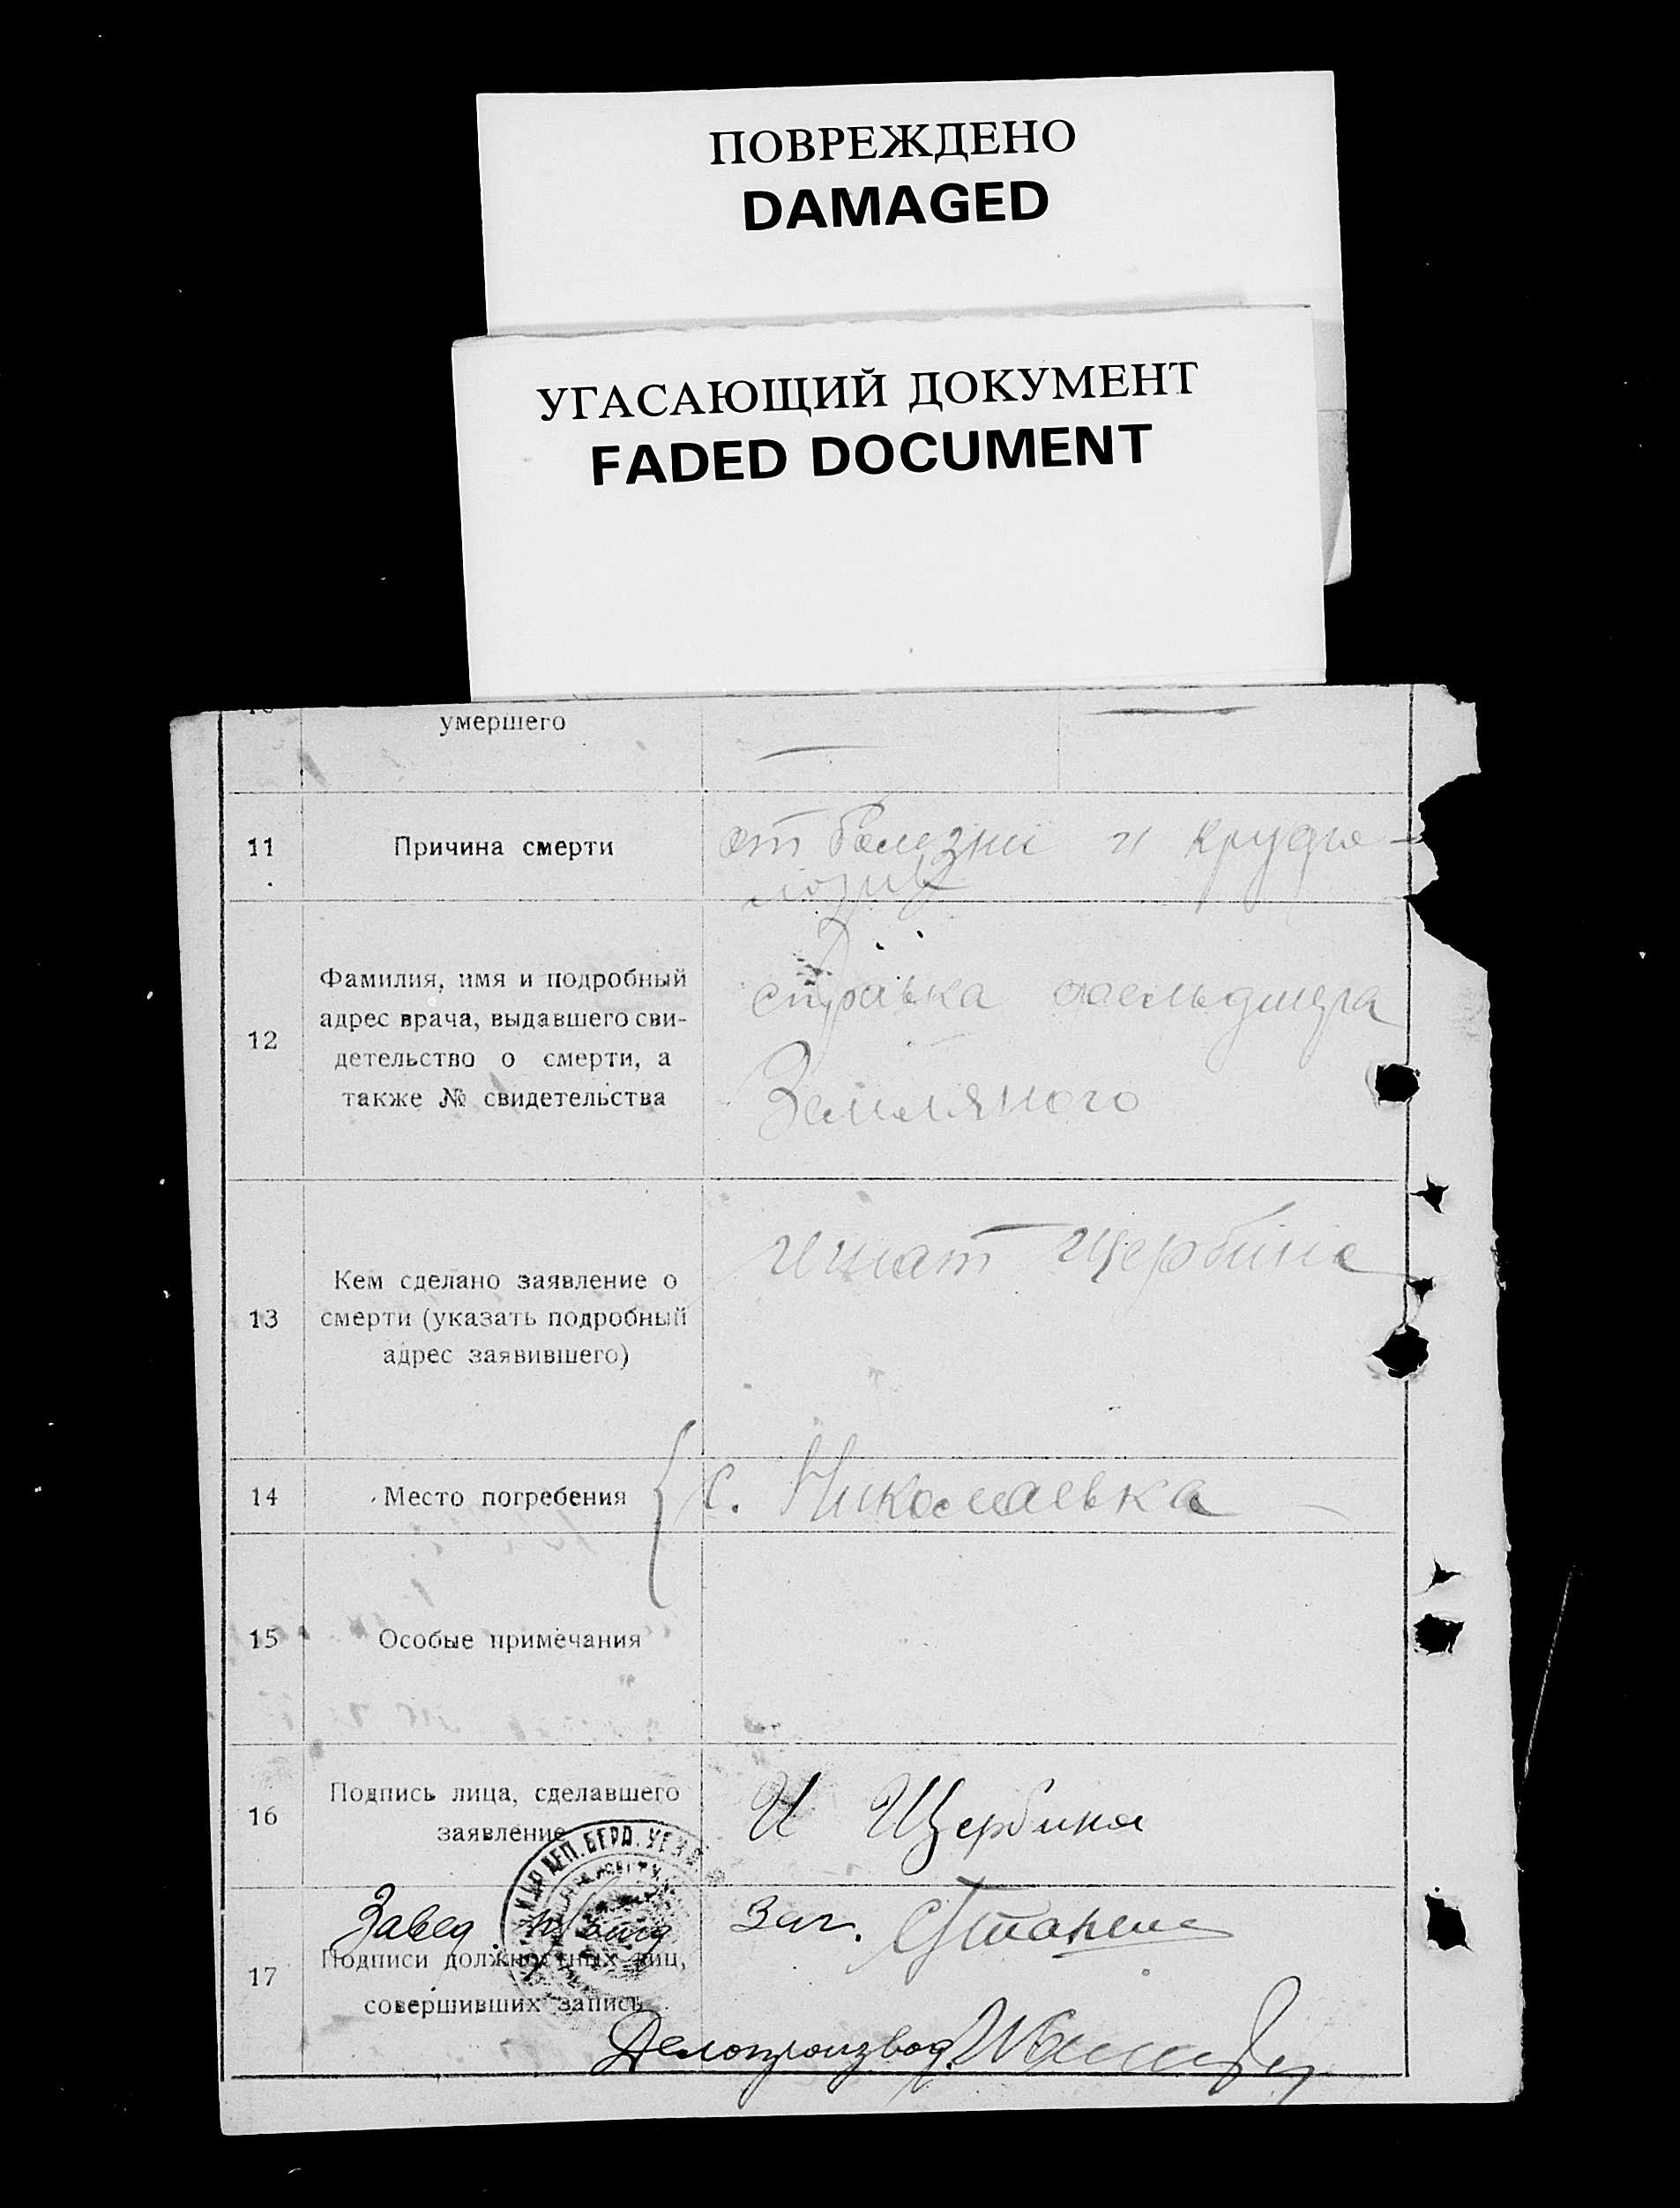 ПОВРЕЖДЕНО
DAMAGED
УГАСАЮЩИЙ ДОКУМЕНТ
FADED DOCUMENT
умершего
11 Причина смерти от болезни и
12 Фамилия, имя и подробный
адрес врача, выдавшего сви-
детельство о смерти, а
также № свидетельства
справка фельдшера
Земляного
13 Кем сделано заявление о
смерти (указать подробный
адрес заявившего)
Игнат Щербина
14 Место погребения с. Николаевка
15 Особые примечания
16 Подпись лица, сделавшего
заявление
И Щербина
Завед. Заг.
17 Подписи должностных лиц,
совершивших запись
Делопроизвод.